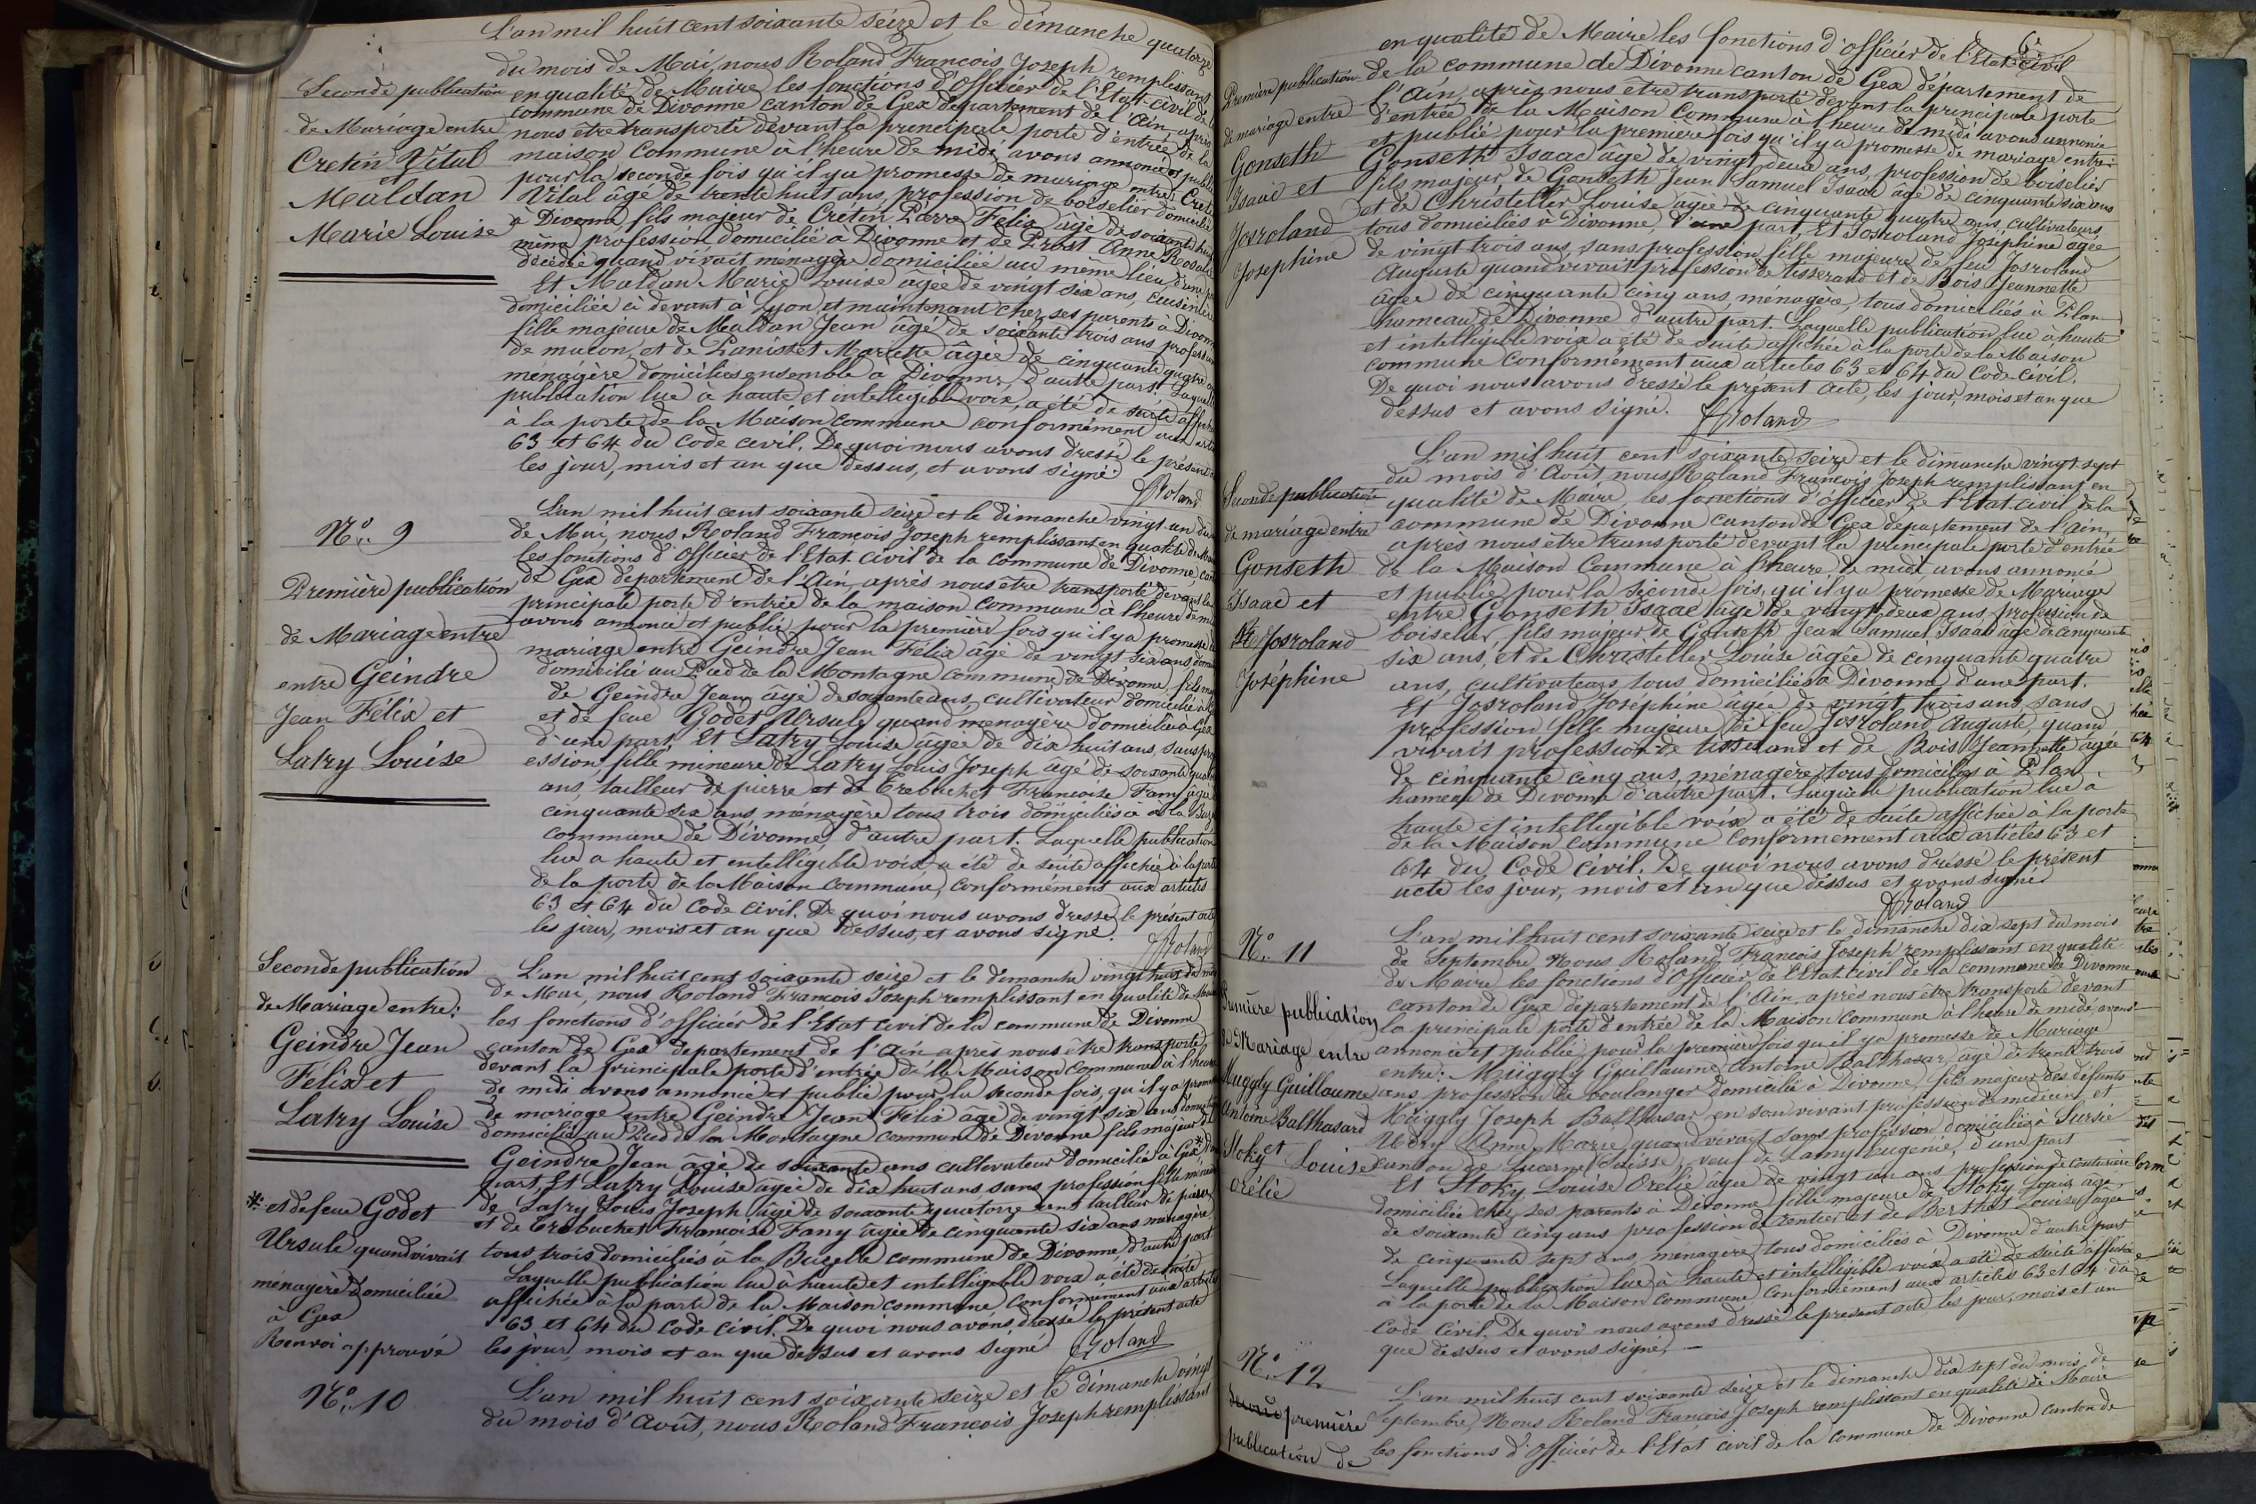 L'an mil huit cent soixante seize et le dimanche quatorze
du mois de Mai, nous Roland François Joseph remplissant
en qualité de Maire les fonctions d'Officier de l'Etat-civil de la
commune de Divonne canton de Gex département de l'Ain, après
nous être transporté devant la principale porte d'entrée de la
maison commune à l'heure de midi avons annoncé et publié
pour la seconde fois qu'il y a promesse de mariage entre Cretin
Vital âgé de trente huit ans, profession de boiselier domicilié
a Divonne, fils majeur de Cretin Pierre Félix âgé de soixante huit
même profession, domicilié à Divonne et de Prost Anne Rosalie
décédée quand vivait ménagère domiciliée au même lieu, d'une part
Et Maldan Marie Louise âgée de vingt six ans, cuisinière
domiciliée ci devant à Lyon et maintenant chez ses parents à Divonne
fille majeure de Maldan Jean âgé de soixante trois ans profession
de maçon, et de Panisset Mariette âgée de cinquante quatre ans
ménagère domiciliés ensemble a Divonne, d'autre part. Laquelle
publication lue à haute et intelligible voix, a été de suite affichée
à la porte de la Maison commune conformément aux articles
63 et 64 du code civil. De quoi nous avons dressé le présent
les jour, mois et an que dessus, et avons signé.
Roland
Seconde publication
de Mariage entre
Cretin Vital
et
Maldan
Marie Louise
N° 9
Première publication
de Mariage entre
entre Geindre
Jean Félix et
Latry Louise
L'an mil huit cent soixante seize et le dimanche vingt-un du
de Mai, nous Roland François Joseph remplissant en qualité de Maire
les fonctions d'Officier de l'Etat civil de la commune de Divonne, canton
de Gex département de l'Ain, après nous être transporté devant la
principale porte d'entrée de la maison commune à l'heure de midi
avons annoncé et publié pour la première fois qu'il y a promesse de
mariage entre Geindre Jean Félix âgé de vingt six ans
domicilié au Pied de la Montagne commune de Divonne, fils majeur
de Geindre Jean âgé de soixante ans, cultivateur domicilié à Gex
et de feue Godet Ursule quand ménagère domiciliée à Gex
d'une part. Et Latry Louise âgée de dix huit ans, sans prof
ession, fille mineure de Latry Louis Joseph âgé de soixante quatorze
ans, tailleur de pierre et de Trebuchet Françoise Fany âgée
cinquante six ans ménagère tous trois domiciliés à la
commune de Divonne, d'autre part. Laquelle publication
lue a haute et intelligible voix, a été de suite affichée à la porte
de la porte de la Maison commune, conformément aux articles
63 et 64 du Code civil. De quoi nous avons dressé le présent acte
les jour, mois et an que dessus, et avons signé.
Roland
Seconde publication
de Mariage entre:
Geindre Jean
Félix et
Latry Louise
L'an mil huit cent soixante seize et le dimanche vingt huit du mois
de Mai, nous Roland François Joseph remplissant en qualité de Maire
les fonctions d'officier de l'Etat civil de la commune de Divonne
canton de Gex département de l'Ain après nous être transporté
devant la principale porte d'entrée de la Maison commune à l'heure
de midi avons annoncé et publié pour la seconde fois, qu'il y a promesse
de mariage entre Geindre Jean Félix âgé de vingt six ans
domicilié au Pied de la Montagne commune de Divonne fils majeur de
Geindre Jean âgé de soixante ans cultivateur domicilié à Gex * d'une
part, Et Latry Louise âgée de dix huit ans sans profession fille mineure
de Latry Louis Joseph âgé de soixante quatorze ans tailleur de pierre
et de Trebuchet Françoise Fany âgée de cinquante six ans ménagère
tous trois domiciliés à la commune de Divonne, d'autre part
Laquelle publication lue à haute et intelligible voix a été de suite
affichée à la porte de la Maison commune, conformément aux articles
63 et 64 du Code civil. De quoi nous avons dressé le présent acte
les jour, mois et an que dessus et avons signé
Roland
* et de feue Godet
Ursule quand vivait
ménagère domiciliée
à Gex
Renvoi approuvé
N° 10
L'an mil huit cent soixante seize et le dimanche vingt
du mois d'Août, nous Roland François Joseph remplissant
6
en qualité de Maire les fonctions d'officier de l'Etat civil
de la commune de Divonne canton de Gex département de
l'Ain, après nous être transporté devant la principale porte
d'entrée de la Maison commune à l'heure de midi avons annoncé
et publié pour la première fois qu'il y a promesse de mariage entre:
Gonseth Isaac âgé de vingt deux ans, profession de boiselier
fils majeur de Gonseth Jean Samuel Isaac âgé de cinquante six ans
et de Christeller Louise âgée de cinquante quatre ans, cultivateurs
tous domiciliés à Divonne, d'une part, Et Josroland Joséphine âgée
de vingt trois ans, sans profession, fille majeure de feu Josroland
Auguste quand vivait profession de tisserand et de Bois Jeannette
âgée de cinquante cinq ans, ménagère, tous domiciliés à Plan
hameau de Divonne d'autre part. Laquelle publication lue à haute
et intelligible voix a été de suite affichée à la porte de la Maison
commune conformément aux articles 63 et 64 du Code civil.
De quoi nous avons dressé le présent acte, les jour, mois et an que
dessus et avons signé.
Roland
Première publication
de mariage entre
Gonseth
Isaac et
Josroland
Josephine
Seconde publication
de mariage entre
Gonseth
Isaac et
Josroland
Joséphine
L'an mil huit cent soixante seize et le dimanche vingt sept
du mois d'Août, nous Roland François Joseph remplissant en
qualité de Maire les fonctions d'officier de l'Etat civil de la
commune de Divonne canton de Gex département de l'Ain,
après nous être transporté devant la principale porte d'entrée
de la Maison Commune à l'heure de midi, avons annoncé
et publié pour la seconde fois, qu'il y a promesse de Mariage
entre Gonseth Isaac âgé de vingt deux ans, profession de
boiselier, fils majeur de Gonseth Jean Samuel Isaac âgé de cinquante
six ans, et de Christeller Louise âgée de cinquante quatre
ans, cultivateurs tous domiciliés à Divonne, d'une part.
Et Josroland Joséphine âgée de vingt trois ans, sans
profession, fille majeure de feu Josroland Auguste, quand
vivait profession de tisserand et de Bois Jeannette âgée
de cinquante cinq ans, ménagère, tous domiciliés à Plan
hameau de Divonne d'autre part. Laquelle publication lue à
haute et intelligible voix a été de suite affichée à la porte
de la Maison commune conformément aux articles 63 et
64 du Code civil. De quoi nous avons dressé le présent
acte les jour, mois et an que dessus et avons signé
Roland
N° 11
Première publication
de Mariage entre
Muggly Guillaume
Antoine Balthasard
et
Stoky Louise
Orélie
L'an mil huit cent soixante seize et le dimanche dix sept du mois
de Septembre, Nous Roland François Joseph remplissant en qualité
de Maire les fonctions d'Officier de l'Etat Civil de la commune de Divonne
canton de Gex département de l'Ain, après nous être transporté devant
la principale porte d'entrée de la Maison commune à l'heure de midi, avons
annoncé et publié pour la première fois qu'il y a promesse de Mariage
entre: Müggly Guillaume Antoine Balthasar, âgé de trente trois
ans profession de boulanger domicilié à Divonne, fils majeur des défunts
Müggly Joseph Balthasar en son vivant profession de médecin et
Anna Marie quand vivait sans profession domiciliés à Sursée
canton de Lucerne (Suisse), veuf de Lamy Eugénie, d'une part
Et Stoky Louise Orélie âgée de vingt un ans profession de couturière
domiciliée chez ses parents à Divonne, fille majeure de Stoky Louis âgé
de soixante cinq ans profession de rentier et de Berthet Louise âgée
de cinquante sept ans, ménagère, tous domiciliés à Divonne d'autre part
Laquelle publication lue à haute et intelligible voix a été de suite affichée
à la porte de la Maison commune conformément aux articles 63 et 64 du
Code Civil. De quoi nous avons dressé le présent acte les jour, mois et an
que dessus et avons signé.
N° 12
première
publication de
L'an mil huit cent soixante seize et le dimanche dix sept du mois de
Septembre, Nous Roland François Joseph remplissant en qualité de Maire
les fonctions d'Officier de l'Etat civil de la commune de Divonne canton de